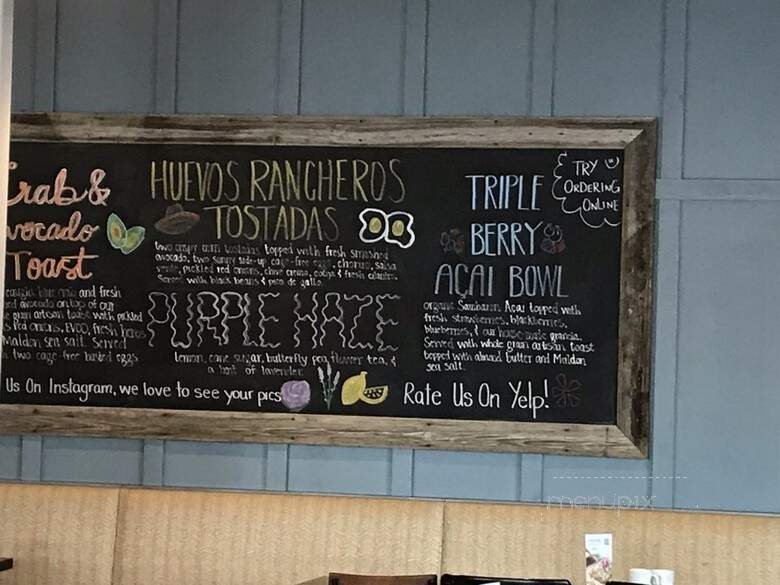 Crab &
Avocado
Toast
and fresh
avocado on top of our
grain artisan toast with pickled
red onions, EVOO, fresh herbs
Maldon sea salt. Served
two cage-free basted eggs
HUEVOS RANCHEROS
TOSTADAS
two crispy corn tostadas topped with fresh smashed
avocado, two sunny side-up cage-free eggs, chorizo, salsa
verde, pickled red onions, chive crema, cotija & fresh cilantro.
Served with black beans & pico de gallo.
PURPLE HAZE
lemon, cane sugar, butterfly pea flower tea, &
a hint of lavender
TRIPLE
BERRY
ACAI BOWL
organic Sambazon Acai topped with
fresh strawberries, blackberries,
blueberries, & our house-made granola.
Served with whole grain artisan toast
topped with almond butter and Maldon
sea salt.
TRY
ORDERING
ONLINE
Us On Instagram, we love to see your pics
Rate Us On Yelp!
menupix